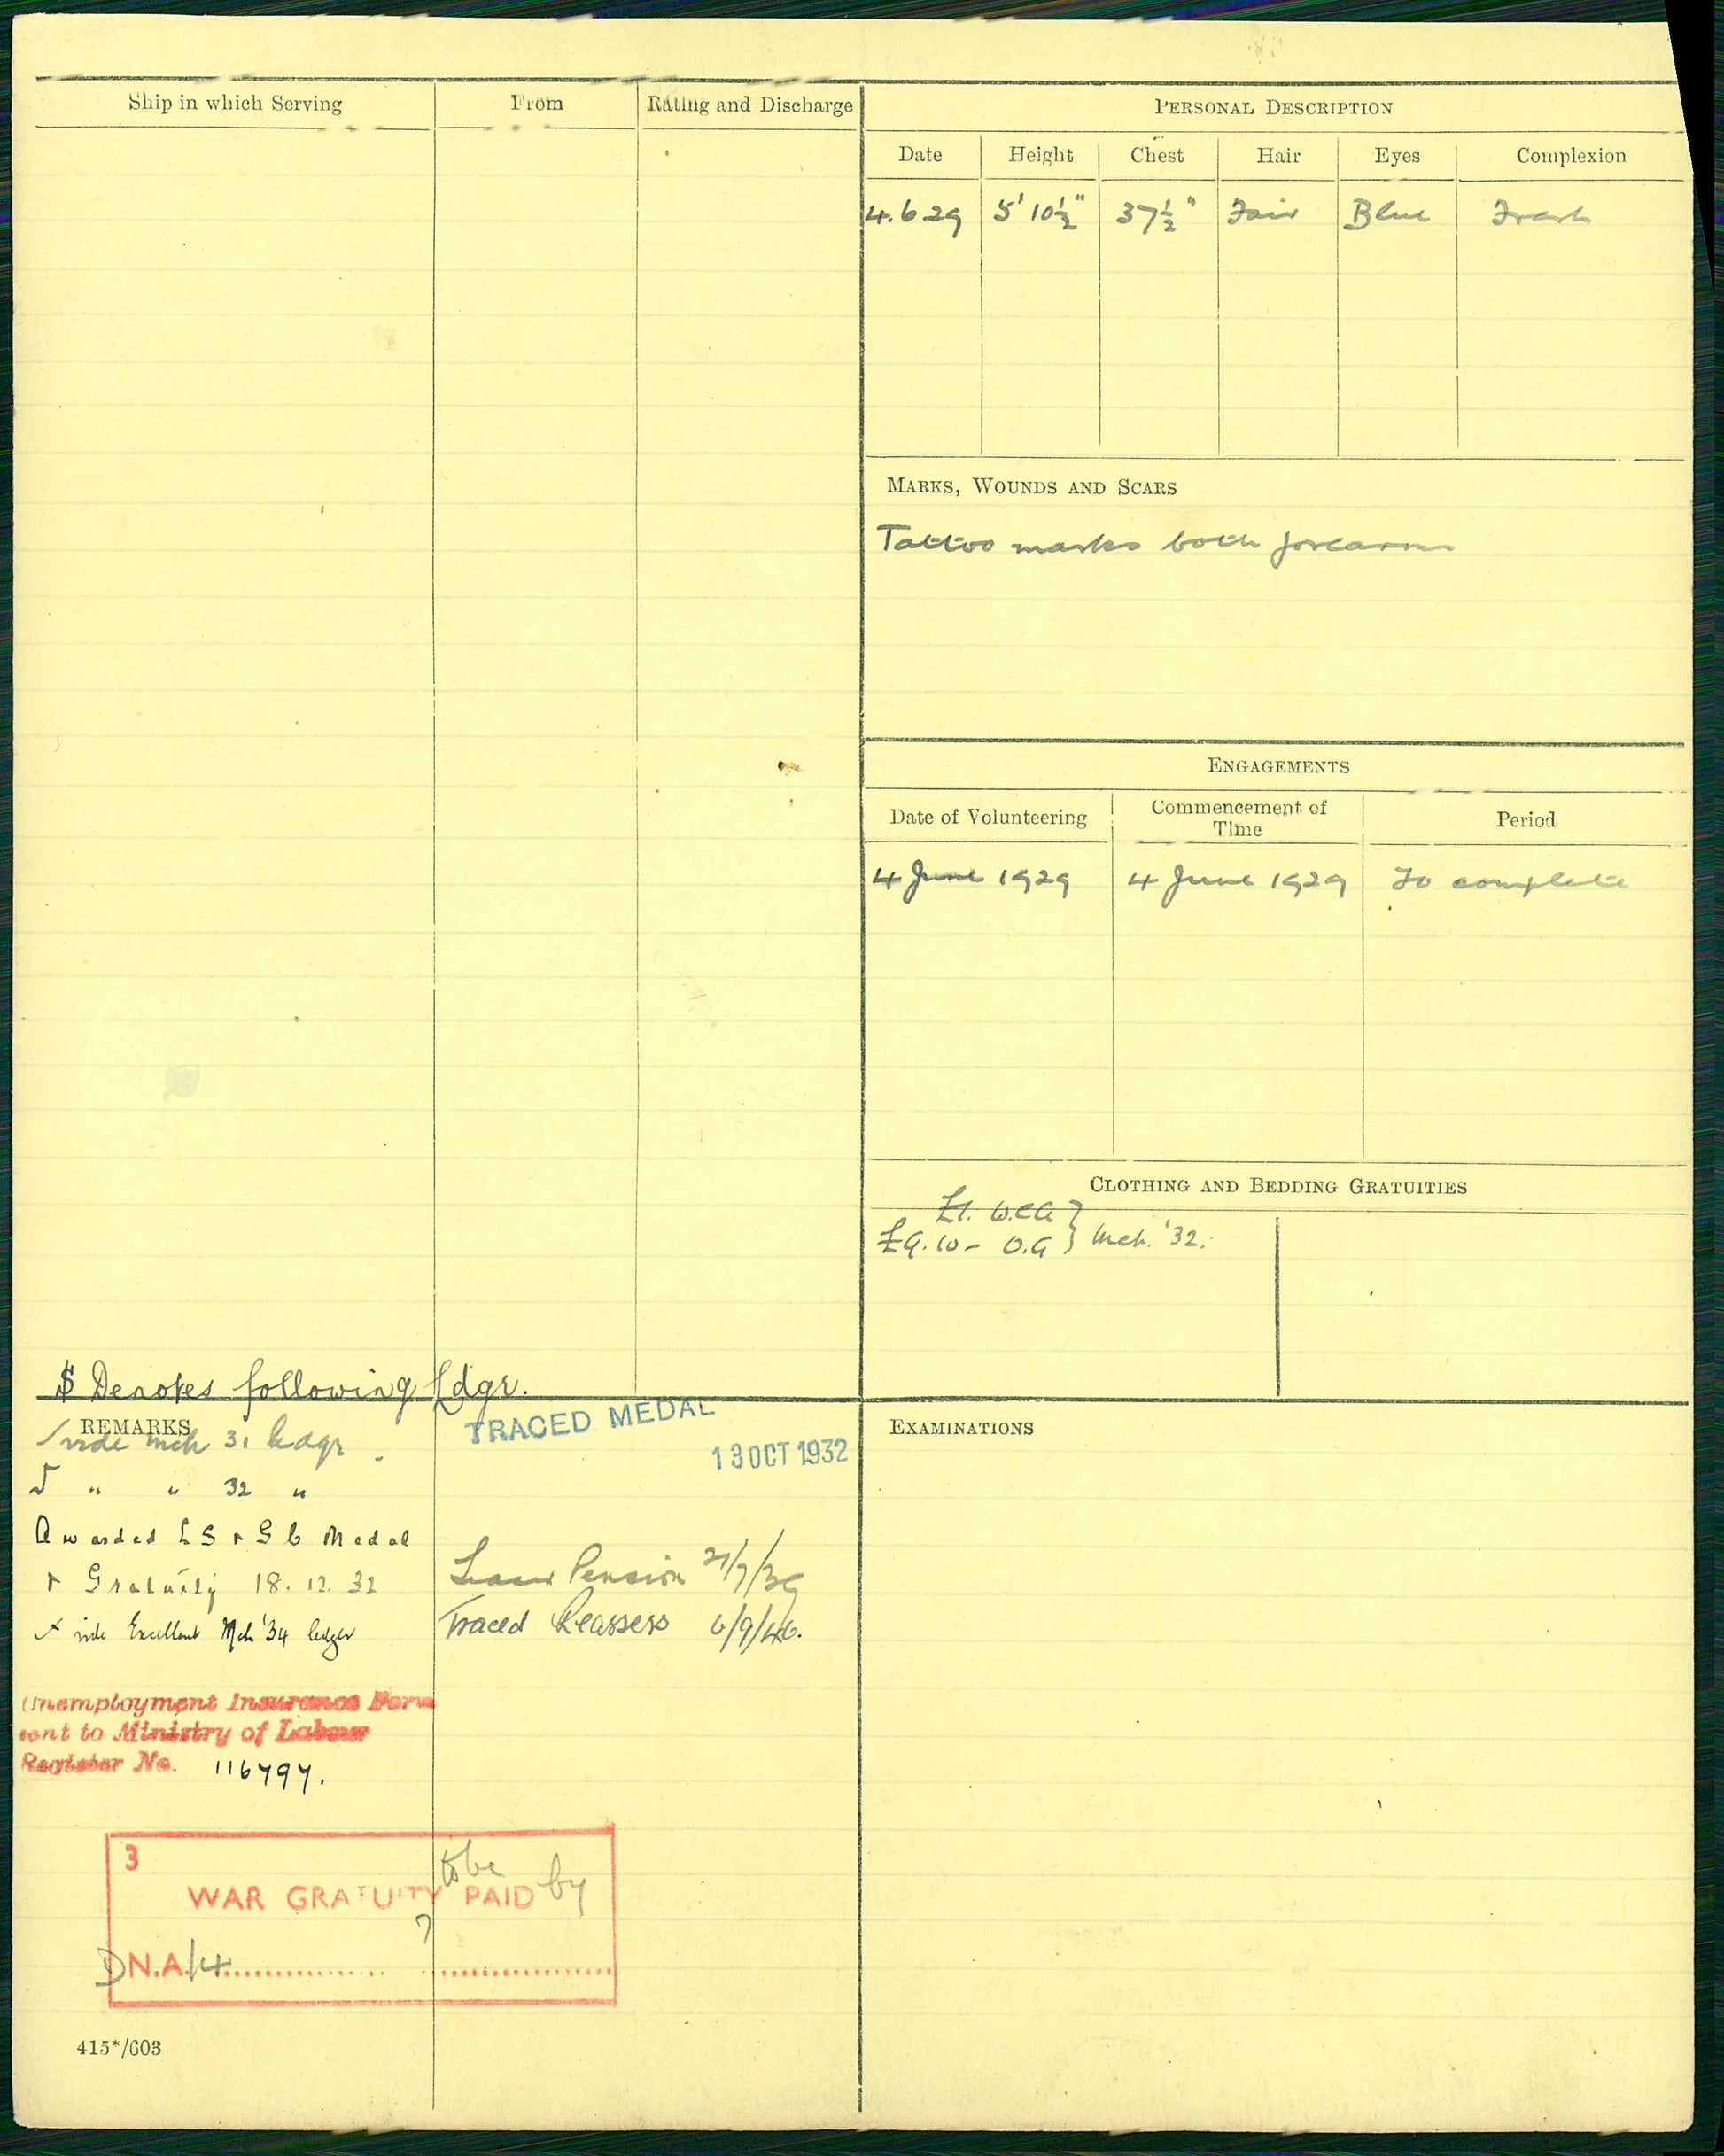 Ship in which Serving From Rating and Discharge
PERSONAL DESCRIPTION
Date Height Chest Hair Eyes Complexion
4.6 29 5' 10½" 37½" Fair Blue Fresh
MARKS, WOUNDS AND SCARS
Tattoo marks both forearms
ENGAGEMENTS
Date of Volunteering Commencement of Time Period
4 June 1929 4 June 1929 To complete
CLOTHING AND BEDDING GRATUITIES
£1. W.C.G }
£9.10- O.G } Mch. '32.
$ Denotes following Ldgr.
REMARKS
vide Mch 31 Ledgr
" " 32 "
Awarded L S & G C Medal
& Gratuity 18. 12. 32
vide Excellent Mch '34 ledger
TRACED MEDAL
13 OCT 1932
Pension
Traced Reassess 6/9/46.
Unemployment Insurance Form
sent to Ministry of Labour
Register No. 116797.
3
to be
WAR GRATUITY PAID by
?
DN.A./14
415*/603
EXAMINATIONS